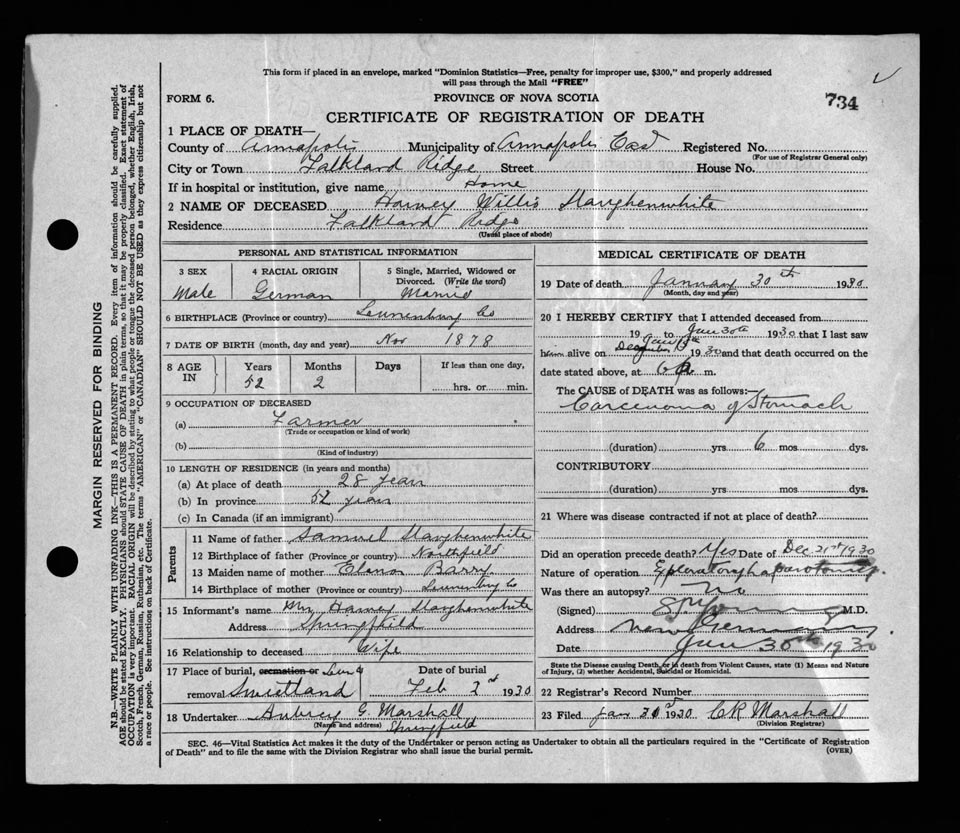 This form if placed in an envelope, marked "Dominion Statistics—Free, penalty for improper use, $300," and properly addressed
will pass through the Mail "FREE"
FORM 6. PROVINCE OF NOVA SCOTIA 734
CERTIFICATE OF REGISTRATION OF DEATH
1 PLACE OF DEATH—
County of Annapolis Municipality of Annapolis East Registered No.
(For use of Registrar General only)
City or Town Falkland Ridge Street House No.
If in hospital or institution, give name Home
2 NAME OF DECEASED Harvey Willis Slaughenwhite
Residence Falkland Ridge
(Usual place of abode)
PERSONAL AND STATISTICAL INFORMATION
3 SEX 4 RACIAL ORIGIN 5 Single, Married, Widowed or
Divorced. (Write the word)
Male German Married
6 BIRTHPLACE (Province or country) Lunenburg Co
7 DATE OF BIRTH (month, day and year) Nov 1878
8 AGE IN Years Months Days If less than one day,
52 2 hrs. or min.
9 OCCUPATION OF DECEASED
(a) Farmer
(Trade or occupation or kind of work)
(b)
(Kind of industry)
10 LENGTH OF RESIDENCE (in years and months)
(a) At place of death 28 years
(b) In province 52 years
(c) In Canada (if an immigrant)
Parents
11 Name of father Samuel Slaughenwhite
12 Birthplace of father (Province or country) Northfield
13 Maiden name of mother Elanor Barry
14 Birthplace of mother (Province or country) Lunenburg Co
15 Informant's name Mrs Harvey Slaughenwhite
Address Springfield
16 Relationship to deceased Wife
17 Place of burial, cremation or Date of burial
removal Feb 2nd 1930
18 Undertaker Aubrey G. Marshall
(Name and address) Springfield
MEDICAL CERTIFICATE OF DEATH
19 Date of death January 30th 1930
(Month, day and year)
20 I HEREBY CERTIFY that I attended deceased from
19 to Jan 30th 1930 that I last saw
him alive on 1930 and that death occurred on the
date stated above, at 6 m.
The CAUSE of DEATH was as follows:—
Carcenoma of Stomach
(duration) yrs 6 mos dys.
CONTRIBUTORY
(duration) yrs mos dys.
21 Where was disease contracted if not at place of death?
Did an operation precede death? Yes Date of Dec 21st 1930
Nature of operation Exploratory Laparotomy
Was there an autopsy? No
(Signed) M.D.
Address New Germany
Date Jan 30th 1930
State the Disease causing Death, or in death from Violent Causes, state (1) Means and Nature
of Injury, (2) whether Accidental, Suicidal or Homicidal.
22 Registrar's Record Number
23 Filed Jan 31st 1930 CR Marshall
(Division Registrar)
SEC. 46—Vital Statistics Act makes it the duty of the Undertaker or person acting as Undertaker to obtain all the particulars required in the "Certificate of Registration
of Death" and to file the same with the Division Registrar who shall issue the burial permit. (OVER)
MARGIN RESERVED FOR BINDING
N.B.—WRITE PLAINLY WITH UNFADING INK—THIS IS A PERMANENT RECORD. Every item of information should be carefully supplied.
AGE should be stated EXACTLY. PHYSICIANS should STATE CAUSE OF DEATH in plain terms, so that it may be properly classified. Exact statement of
OCCUPATION is very important. RACIAL ORIGIN will be described by stating to what people or tongue the deceased person belonged, whether English, Irish,
Scotch, French, German, Russian, Ruthenian, etc. The terms "AMERICAN" or "CANADIAN" SHOULD NOT BE USED as they express citizenship but not
a race or people. See instructions on back of Certificate.